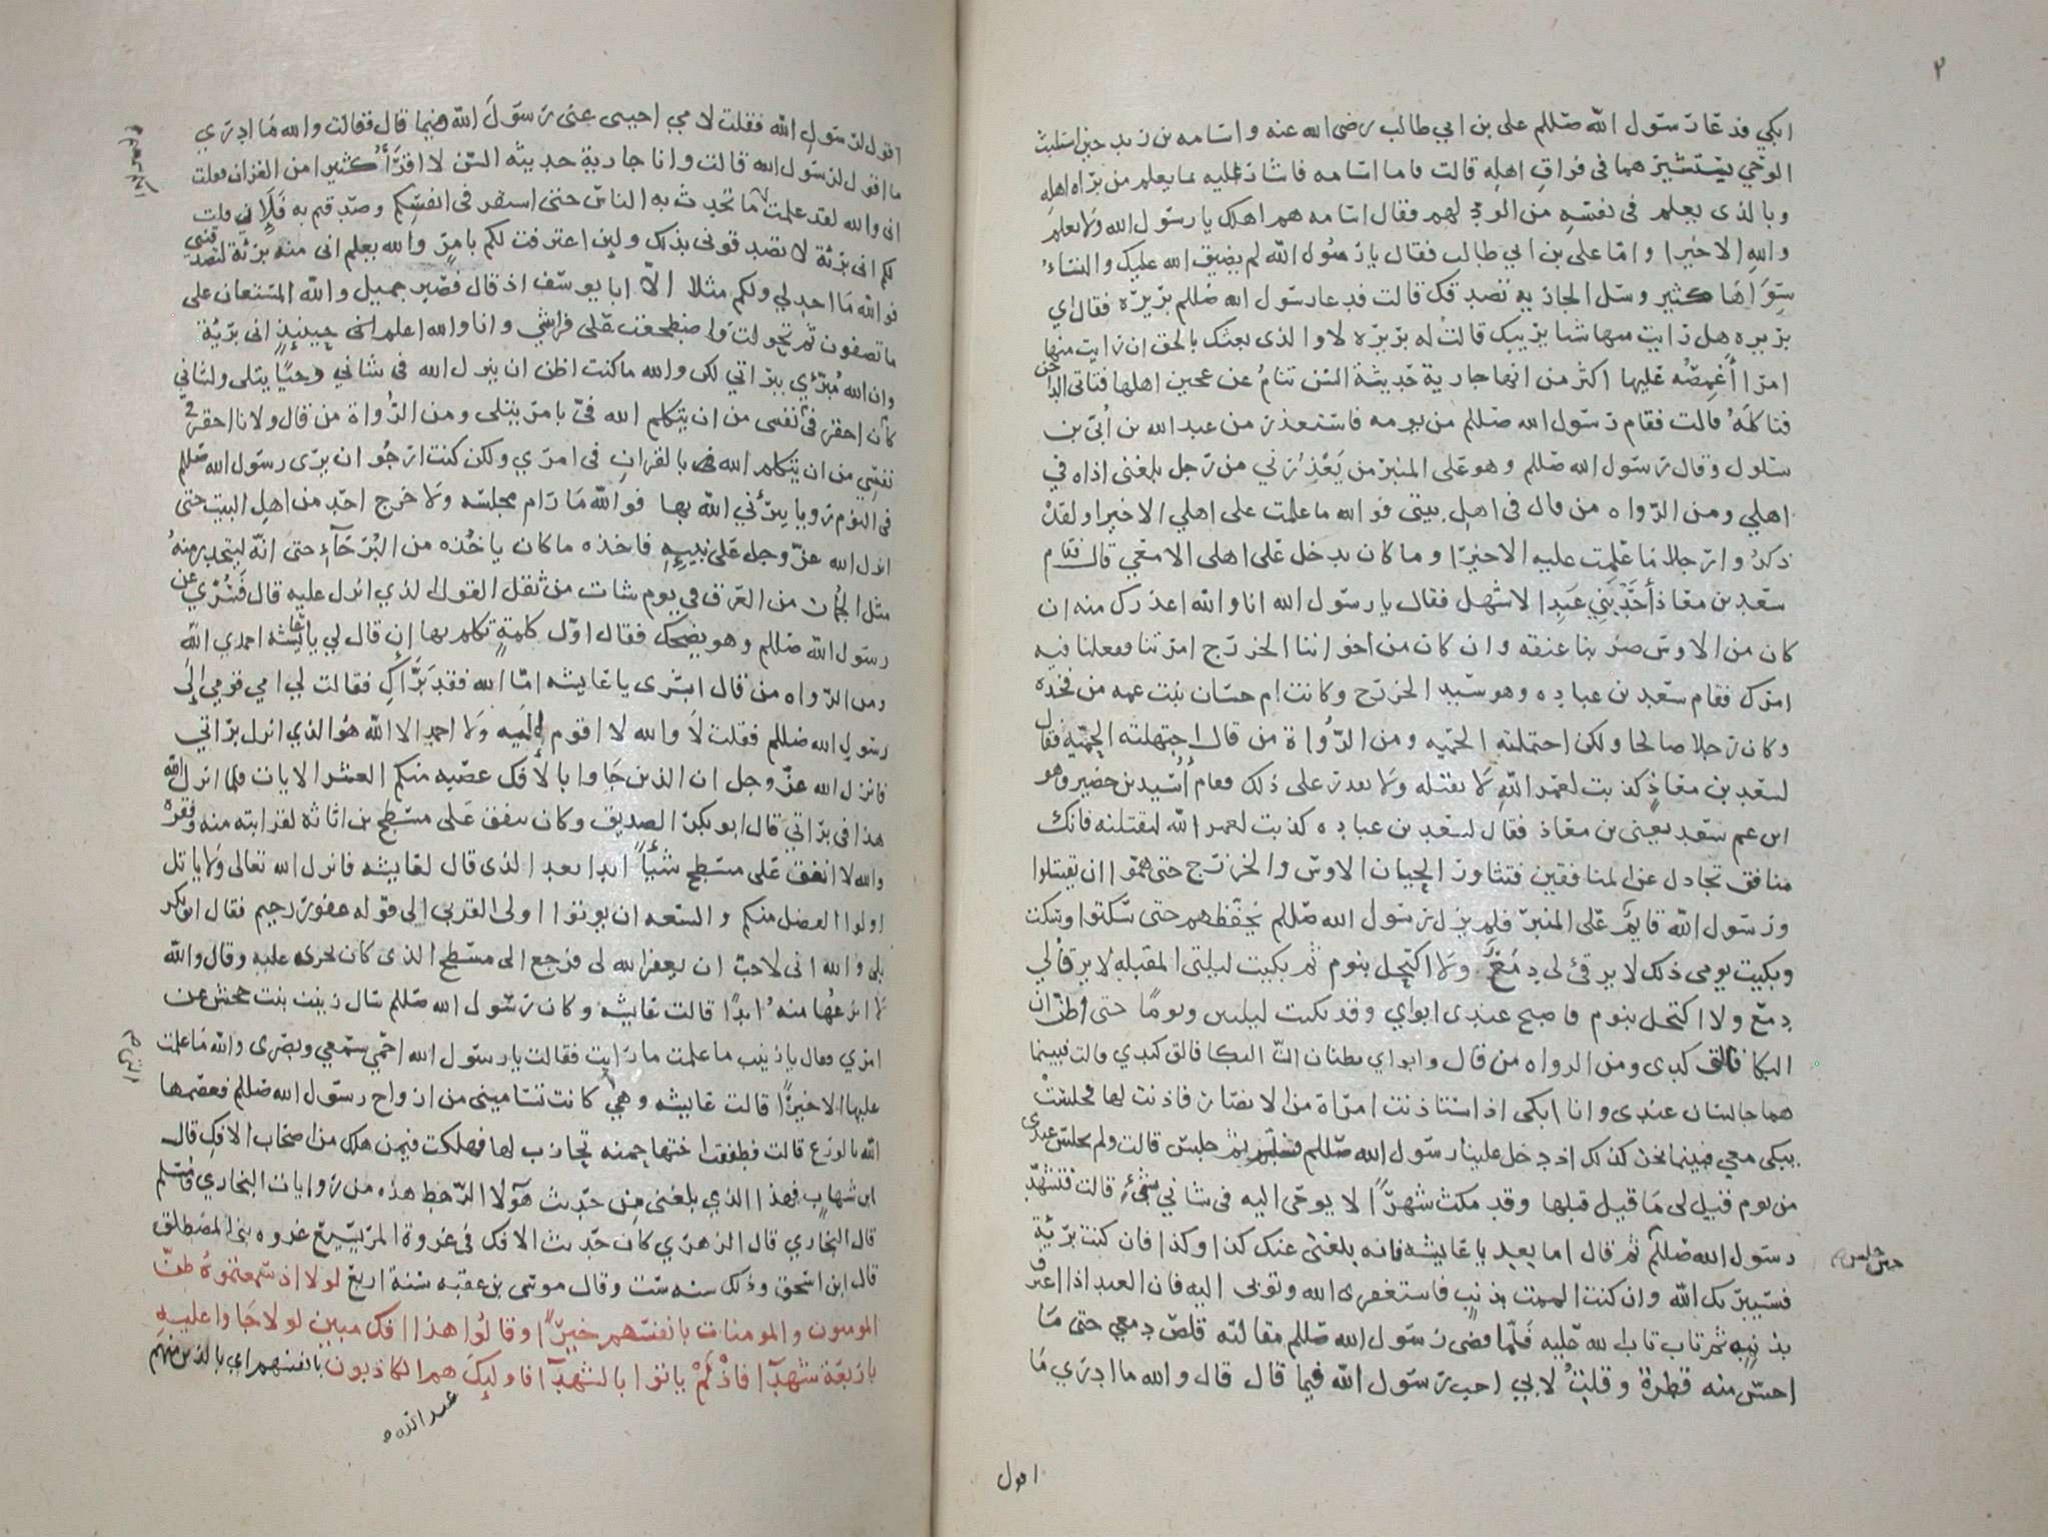 ٢
ابكي فدعا رسول الله صللم على بن ابي طالب رضى الله عنه واسامه بن زيد حين استلبث
الوحي يستشيرهما فى فراق اهله قالت فاما اسامه فاشار عليه بما يعلم من براه اهله
وبالذى يعلم فى نفسه من الود لهم فقال اسامه هم اهلك يا رسول الله ولا نعلم
والله الا خيرا واما على بن ابي طالب فقال يا رسول الله لم يضيق الله عليك والنساء
سواها كثير وسل الجاريه تصدقك قالت فدعا رسول الله صللم بريره فقال اي
بريره هل رايت منها شيا يريبك قالت له بريره لا والذى بعثك بالحق ان رايت منها
امرا أغمصه عليها اكثر من انها جارية حديثة السن تنام عن عجين اهلها فتاتى الداجن
فتاكله قالت فقام رسول الله صللم من يومه فاستعذر من عبد الله بن أبي بن
سلول وقال رسول الله صللم وهو على المنبر من يعذرني من رجل بلغنى اذاه في
اهلي ومن الرواه من قال فى اهل بيتى فوالله ما علمت على اهلي الا خيرا ولقد
ذكروا رجلا ما علمت عليه الا خيرا وما كان يدخل على اهلى الا معي قالت فقام
سعد بن معاذ أخو بني عبد الاشهل فقال يا رسول الله انا والله اعذرك منه ان
كان من الاوس ضربنا عنقه وان كان من اخواننا الخزرج امرتنا ففعلنا فيه
امرك فقام سعد بن عباده وهو سيد الخزرج وكانت ام حسان بنت عمه من فخذه
وكان رجلا صالحا ولكن احتملته الحميه ومن الرواة من قال اجتهلته الحميه فقال
لسعد بن معاذ كذبت لعمر الله لا تقتله ولا تقدر على ذلك فقام أسيد بن حضير وهو
ابن عم سعد يعني بن معاذ فقال لسعد بن عباده كذبت لعمر الله لنقتلنه فانك
منافق تجادل عن المنافقين فتثاور الحيان الاوس والخزرج حتى هموا ان يقتتلوا
ورسول الله قايم على المنبر فلم يزل رسول الله صللم يخفضهم حتى سكتوا وسكت
وبكيت يومى ذلك لا يرقئ لى دمع ولا اكتحل بنوم ثم بكيت ليلتى المقبله لا يرقا لي
دمع ولا اكتحل بنوم فاصبح عندى ابواي وقد بكيت ليلتين ويوما حتى اظن ان
البكا فالق كبدى ومن الرواه من قال وابواي يظنان ان البكا فالق كبدي قالت فبينما
هما جالسان عندى وانا ابكى اذ استاذنت امراة من الانصار فاذنت لها فجلست
تبكى معي فبينما نحن كذلك اذ دخل علينا رسول الله صللم فسلم ثم جلس قالت ولم يجلس عندى
من يوم قيل لى ما قيل قبلها وقد مكث شهرا لا يوحى اليه فى شاني شئ قالت فتشهد
رسول الله صللم ثم قال اما بعد يا عايشه فانه بلغنى عنك كذا وكذا فان كنت برية
حين جلس
فسيبريك الله وان كنت الممت بذنب فاستغفرى الله وتوبى اليه فان العبد اذا اعترف
بذنبه ثم تاب تاب الله عليه فلما قضى رسول الله صللم مقالته قلص دمعي حتى ما
احس منه قطرة وقلت لابي اجب رسول الله فيما قال قال والله ما ادري ما
اقول
اقول لرسول الله فقلت لامي اجيبى عنى رسول الله فيما قال فقالت والله ما ادري
ما اقول لرسول الله قالت وانا جارية حديثه السن لا اقرأ كثيرا من القران فقلت
انى والله لقد علمت ما تحدث به الناس حتى استقر فى انفسكم وصدقتم به فلان قلت
لكم انى برئة لا تصدقونى بذلك ولين اعترفت لكم بامر والله يعلم انى منه بريئة لتصدقنى
فوالله ما اجد لي ولكم مثلا الا ابا يوسف اذ قال فصبر جميل والله المستعان على
ما تصفون ثم تحولت واضطجعت على فراشي وانا والله اعلم انى حينيذ انى بريّة
وان الله مبرئي ببراتي لكن والله ما كنت اظن ان ينزل الله فى شاني وحيا يتلى ولشاني
كان احقر فى نفسى من ان يتكلم الله فيّ بامر يتلى ومن الرواة من قال ولانا احقر
نفسي من ان يتكلم الله بالقران فى امري ولكن كنت ارجو ان يرى رسول الله صللم
فى النوم رويا يبرئني الله بها فوالله ما رام مجلسه ولا خرج احد من اهل البيت حتى
انزل الله عز وجل على نبيه فاخذه ما كان ياخذه من البرحآء حتى انه ليتحدر منه
مثل الجمان من العرق في يوم شات من ثقل القول الذي انزل عليه قال فسري عن
رسول الله صللم وهو يضحك فقال اول كلمة تكلم بها ان قال لي يا عايشه احمدي الله
ومن الرواه من قال ابشرى يا عايشه اما الله فقد براك فقالت لي امي قومي الى
رسول الله صللم فقلت لا والله لا اقوم اليه ولا احمد الا الله هو الذي انزل براتي
فانزل الله عز وجل ان الذين جاوا بالافك عصبه منكم العشر الايات فلما انزل الله
هذا فى براتي قال ابو بكر الصديق وكان ينفق على مسطح بن اثاثه لقرابته منه وفقره
والله لا انفق على مسطح شيأ ابدا بعد الذى قال لعايشه فانزل الله تعالى ولا ياتل
اولوا الفضل منكم والسعه ان يوتوا اولى القربى الى قوله غفور رحيم فقال ابو بكر
بلى والله انى لاحب ان يغفر الله لى فرجع الى مسطح الذى كان يجرى عليه وقال والله
لا انزعها منه ابدا قالت عايشه وكان رسول الله صللم سال زينب بنت جحش عن
امري فقال يا زينب ما علمت ما رايت فقالت يا رسول الله احمي سمعي وبصرى والله ما علمت
عليها الا خيرا قالت عايشه وهي كانت تسامينى من ازواج رسول الله صللم فعصمها
الله بالورع قالت فطفقت اختها حمنه تحارب لها فهلكت فيمن هلك من اصحاب الافك قال
ابن شهاب فهذا الذي بلغنى من حديث هولا الرهط هذه من روايات البخاري ومسلم
قال البخاري قال الزهري كان حديث الافك فى غزوة المريسيع غزوه بنى المصطلق
قال ابن اسحق وذلك سنه ست وقال موسى بن عقبه سنة اربع لولا اذ سمعتموه ظن
المومنون والمومنات بانفسهم خيرا وقالوا هذا افك مبين لولا جاوا عليه
باربعة شهدآ فاذ لم ياتوا بالشهدآ فاوليك هم الكاذبون بانفسهم اي بالذين منهم
عبد الله